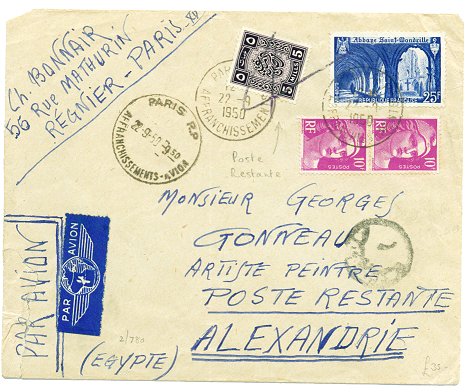 Ch. BONNAIR
56 Rue MATHURIN
RÉGNIER-PARIS-XV
5 MILLS 5
Abbaye Saint-Wandrille
RÉPUBLIQUE FRANÇAISE
25F
AFFRANCHISSEMENTS
22-9
1950
1950
PARIS R.P
22-9-50-9.30
AFFRANCHISSEMENTS-AVION
RF
POSTES
10F
RF
POSTES
10F
Poste
Restante
MONSIEUR GEORGES
GONNEAU
ARTISTE PEINTRE
POSTE RESTANTE
ALEXANDRIE
(EGYPTE)
PAR AVION
PAR AVION
2/780
£35-